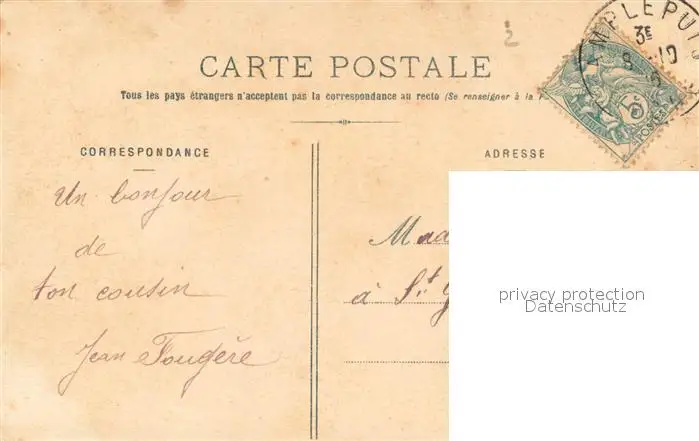 MPLEPUIS
3E
8 -10
2
5c
POSTES
CARTE POSTALE
Tous les pays étrangers n'acceptent pas la correspondance au recto (Se renseigner à la
CORRESPONDANCE
Un bonjour
de
ton cousin
Jean Fougère
ADRESSE
Mad
à St
privacy protection
Datenschutz